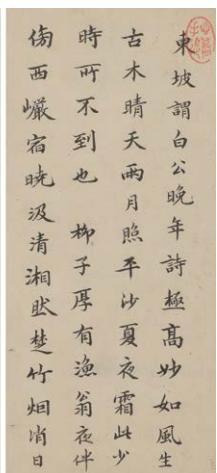 東坡謂白公晚年詩極髙妙如風生
古木晴天雨月照平沙夏夜霜此少
時所不到也 柳子厚有漁翁夜伴
傍西巗宿曉汲清湘㸐楚竹烟消日